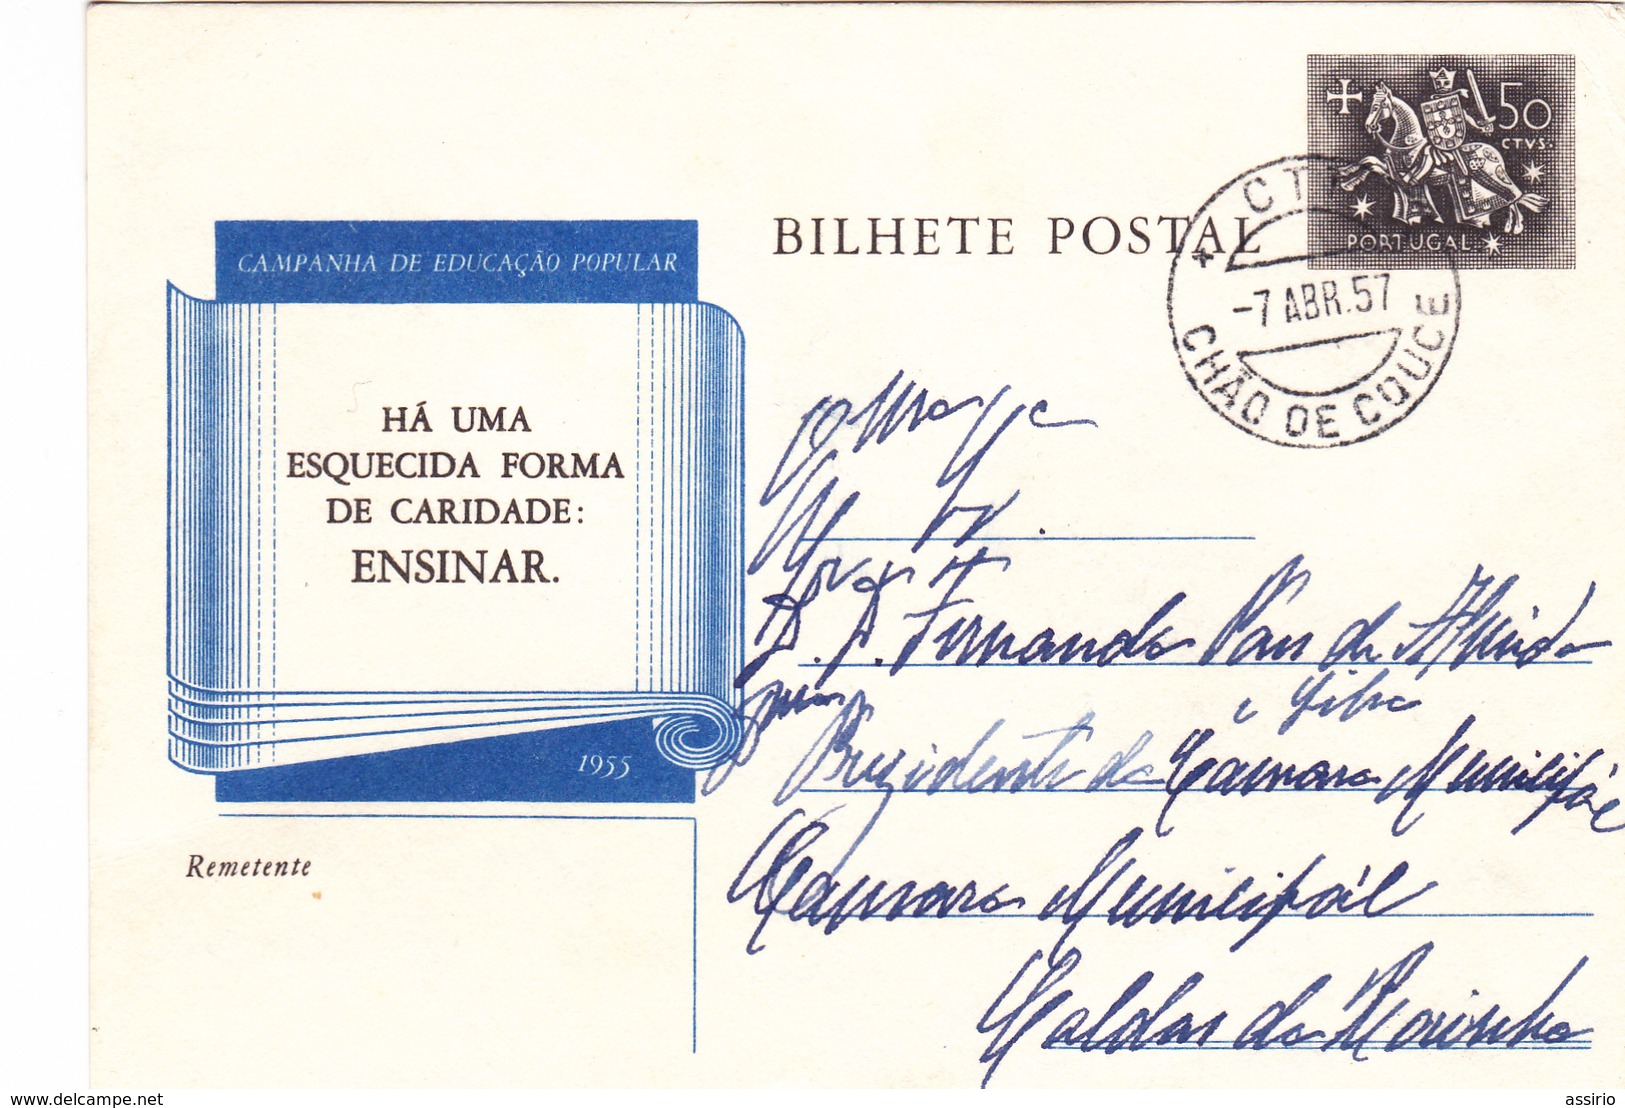 50
CTVS.
PORTUGAL
BILHETE POSTAL
CTT
-7 ABR.57
CHÃO DE COUCE
CAMPANHA DE EDUCAÇÃO POPULAR
HÁ UMA
ESQUECIDA FORMA
DE CARIDADE:
ENSINAR.
1955
Remetente
Fernando Pais de Almeida
e Silva
Prezidente da Camara Municipál
Camara Municipál
Caldas da Rainha
www.delcampe.net
assirio